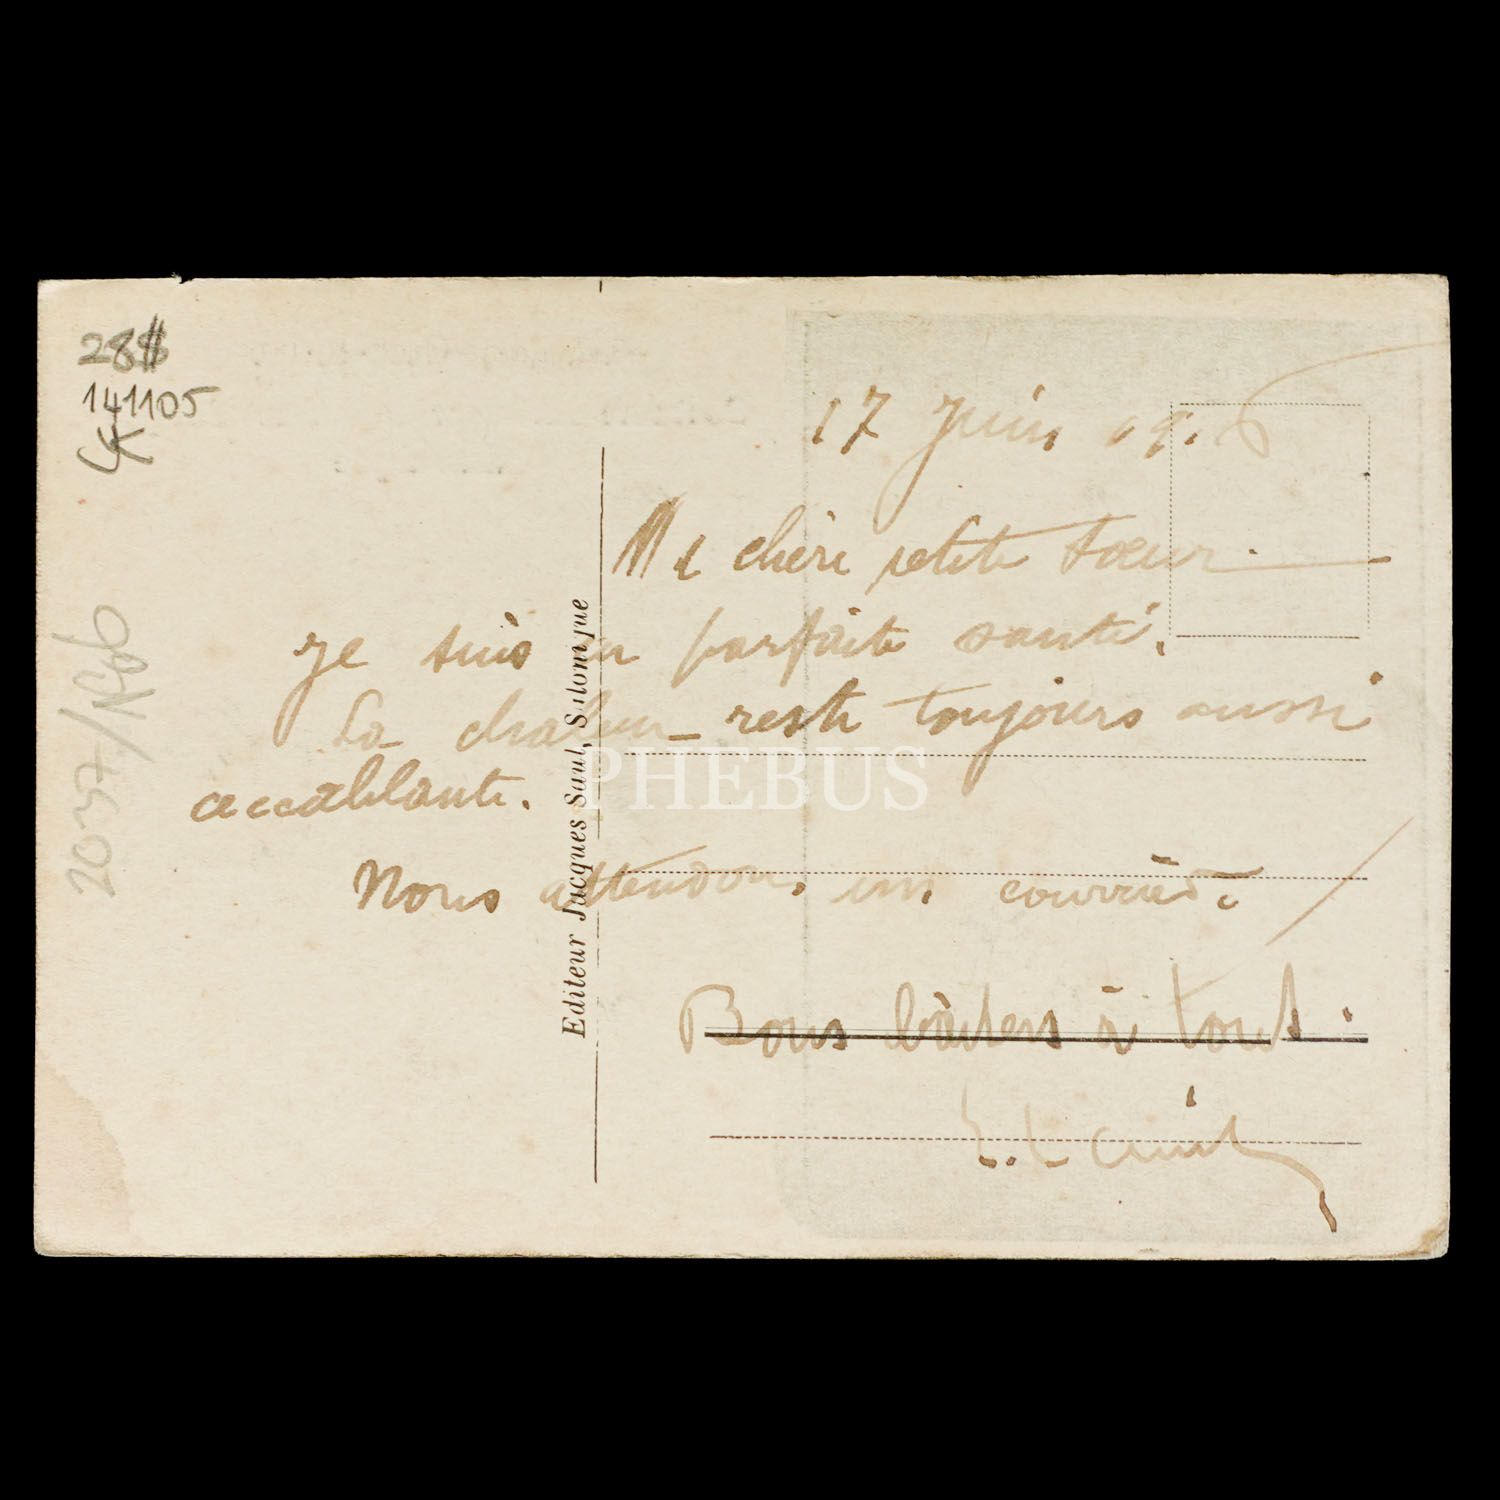 288
141105
17 Juin 1916
Ma chère petite sœur.
Je suis en parfaite santé.
La chaleur reste toujours aussi
accablante.
Nous attendons un courrier.
Bons baisers à tous.
Editeur Jacques Saul, Salonique
PHEBUS